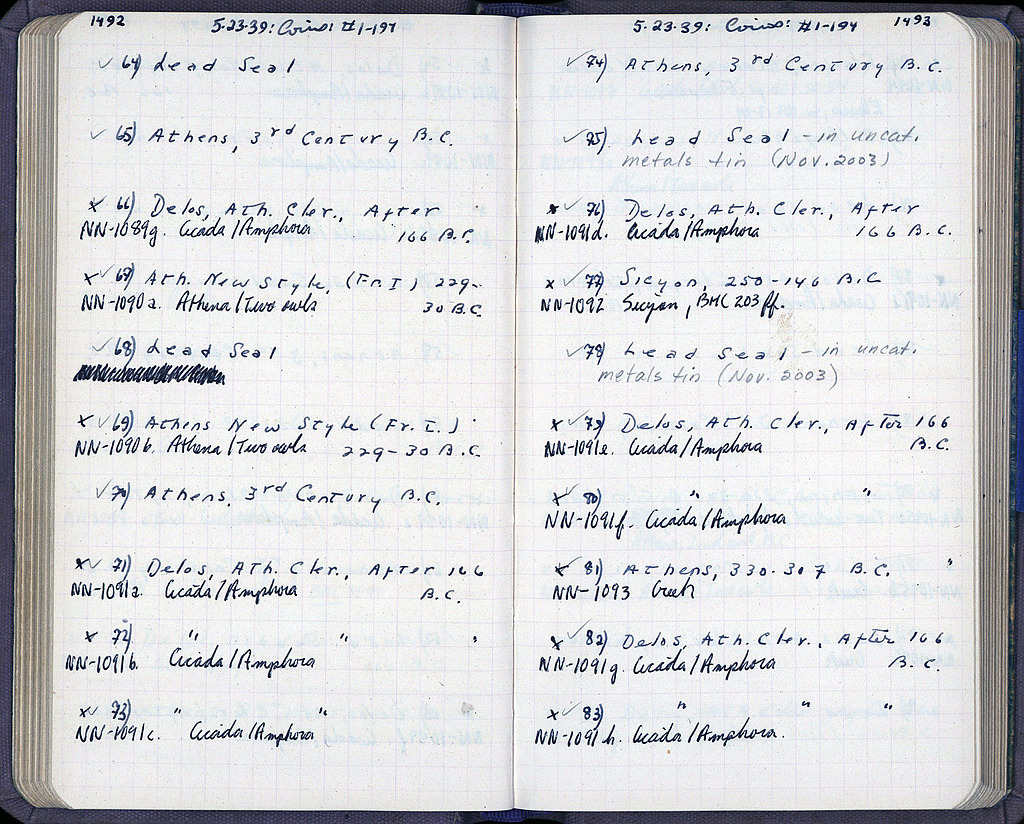 1492
5.23.39: Coins: #1-197
✓ 64) Lead Seal
✓ 65) Athens, 3rd Century B.C.
x ✓ 66) Delos, Ath. Cler., After
NN-1089g. Cicada/Amphora 166 B.C.
x ✓ 67) Ath. New Style, (Fr. I) 229-
NN-1090a. Athena/Two owls 30 B.C.
✓ 68) Lead Seal
x ✓ 69) Athens New Style (Fr. I.)
NN-1090b. Athena/Two owls 229-30 B.C.
✓ 70) Athens, 3rd Century B.C.
x ✓ 71) Delos, Ath. Cler., After 166
NN-1091a. Cicada/Amphora B.C.
x ✓ 72) " " "
NN-1091b. Cicada/Amphora
x ✓ 73) " "
NN-1091c. Cicada/Amphora
5.23.39: Coins: #1-194 1493
✓ 74) Athens, 3rd Century B.C.
✓ 75) Lead Seal - in uncat.
metals tin (Nov. 2003)
x ✓ 76) Delos, Ath. Cler., After
NN-1091d. Cicada/Amphora 166 B.C.
x ✓ 77) Sicyon, 250-146 B.C
NN-1092 Sicyon, BMC 203 ff.
✓ 78) Lead Seal - in uncat.
metals tin (Nov. 2003)
x ✓ 79) Delos, Ath. Cler., After 166
NN-1091e. Cicada/Amphora B.C.
x ✓ 80) " "
NN-1091f. Cicada/Amphora
x ✓ 81) Athens, 330-307 B.C. "
NN-1093 Greek
x ✓ 82) Delos, Ath. Cler., After 166
NN-1091g. Cicada/Amphora B.C.
x ✓ 83) " " "
NN-1091h. Cicada/Amphora.